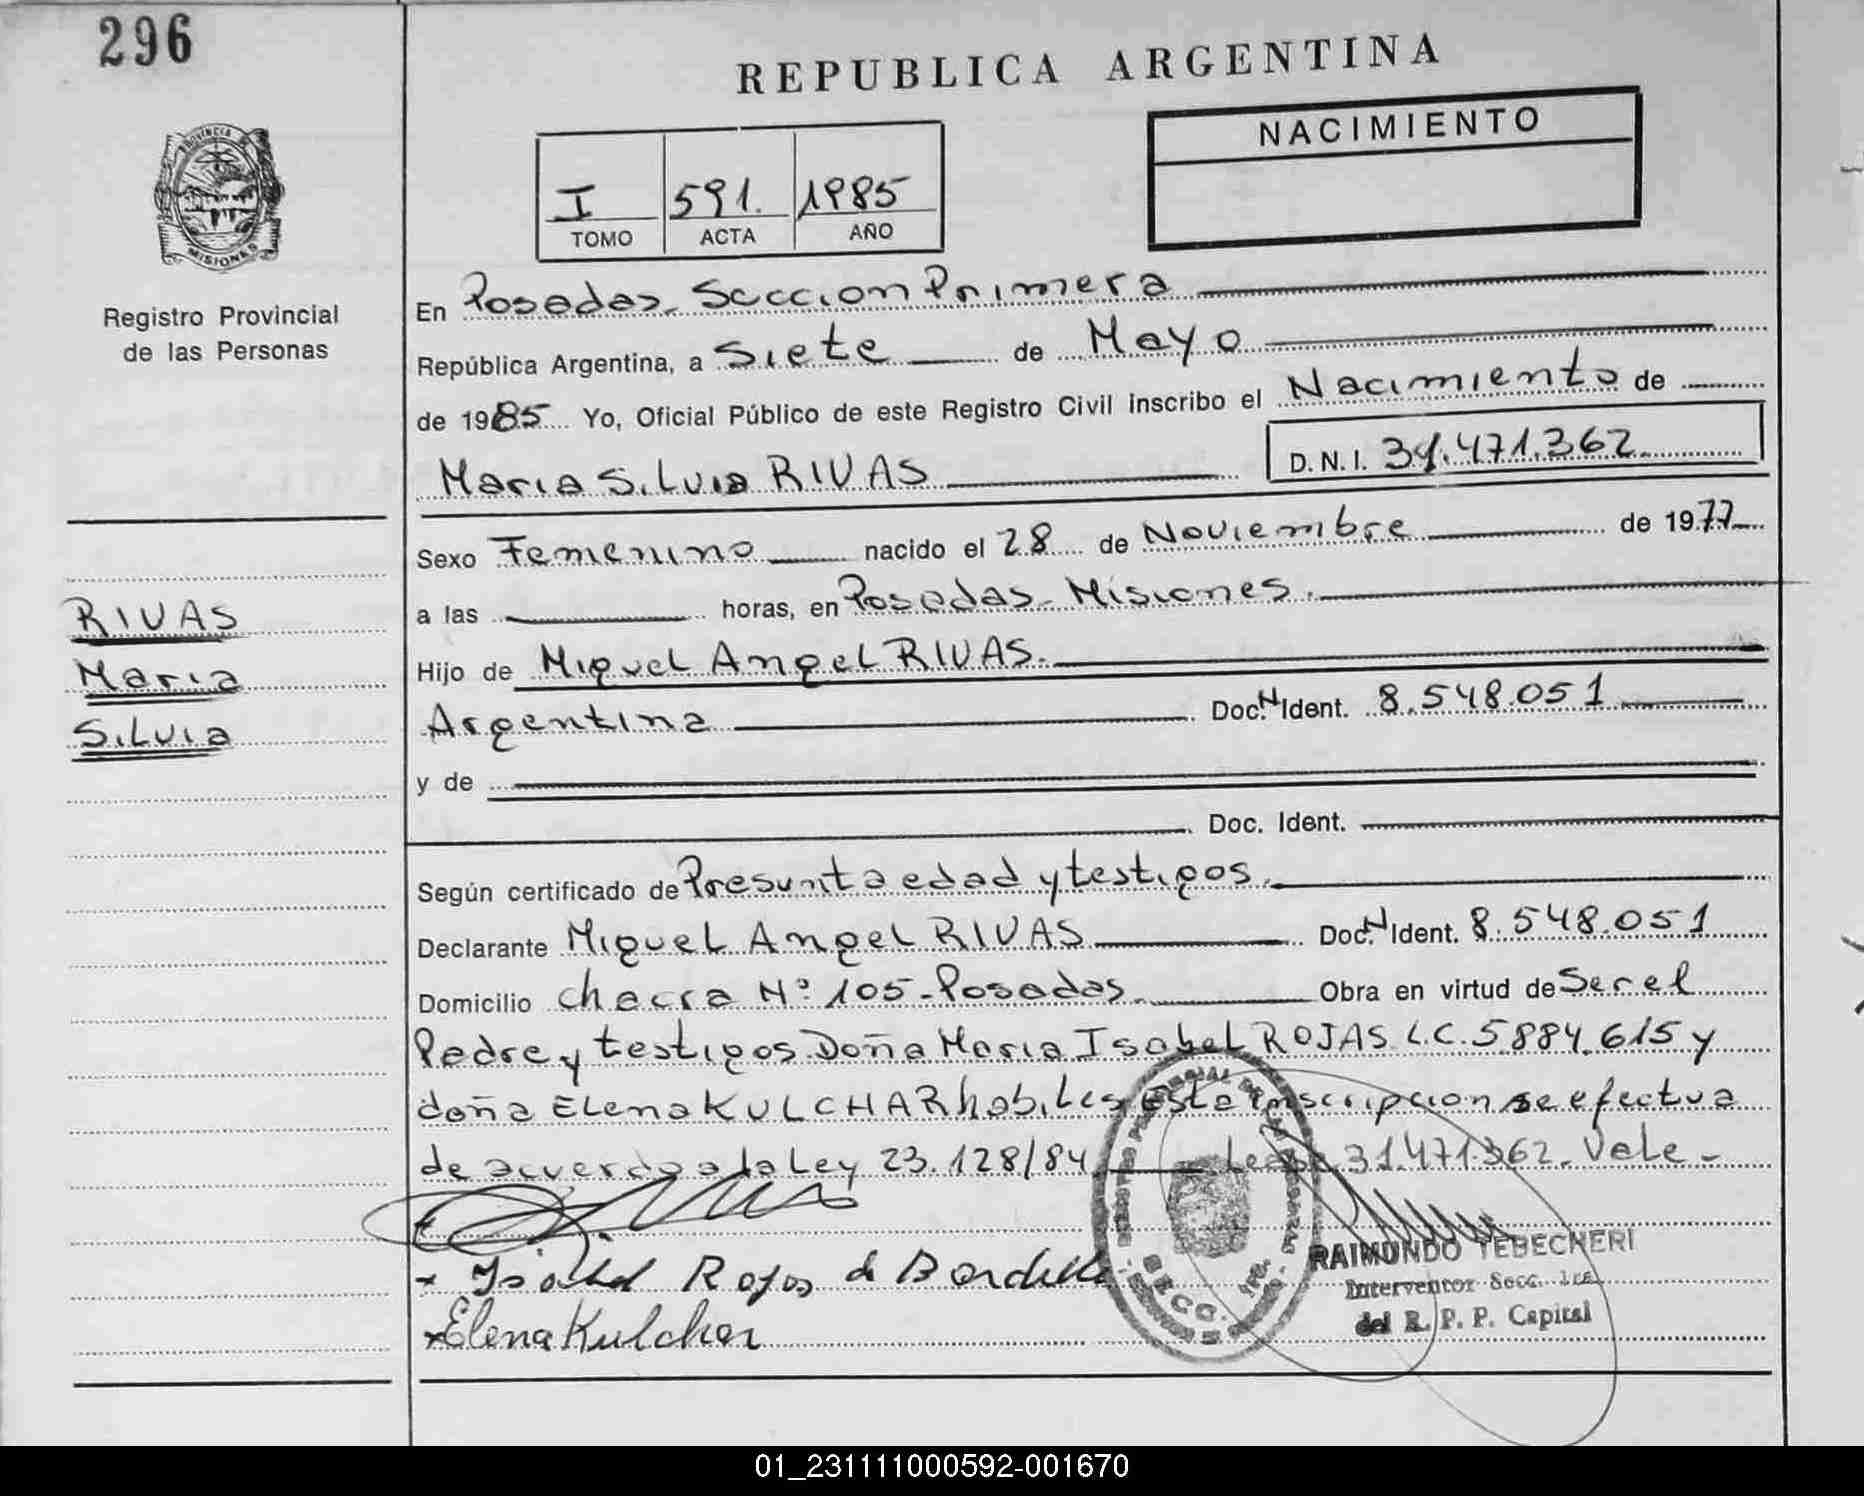 296
REPUBLICA ARGENTINA
NACIMIENTO
I 591. 1985
TOMO ACTA AÑO
PROVINCIA DE
MISIONES
Registro Provincial
de las Personas
En Posadas, Seccion Primera
República Argentina, a Siete de Mayo
de 1985 Yo, Oficial Público de este Registro Civil inscribo el Nacimiento de
Maria Silvia RIVAS D. N. I. 31.471.362
Sexo Femenino nacido el 28 de Noviembre de 1977
a las horas, en Posadas - Misiones.
RIVAS
Maria
Silvia
Hijo de Miguel Angel RIVAS.
Argentina Doc. N Ident. 8.548.051
y de
Doc. Ident.
Según certificado de Presunta edad y testigos.
Declarante Miguel Angel RIVAS Doc. N Ident. 8.548.051
Domicilio Chacra Nº 105 - Posadas. Obra en virtud de Ser el
Padre y testigos Doña Maria Isabel ROJAS L.C. 5.884.615 y
doña Elena KULCHAR habiles, esta inscripcion se efectua
de acuerdo a la Ley 23.128/84. Lease 31.471.362. Vale -
Isabel Rojas de
Elena Kulchar
SECC. 1ra.
RAIMUNDO TEBECHERI
Interventor Secc. 1ra.
del R. P. P. Capital
01_231111000592-001670